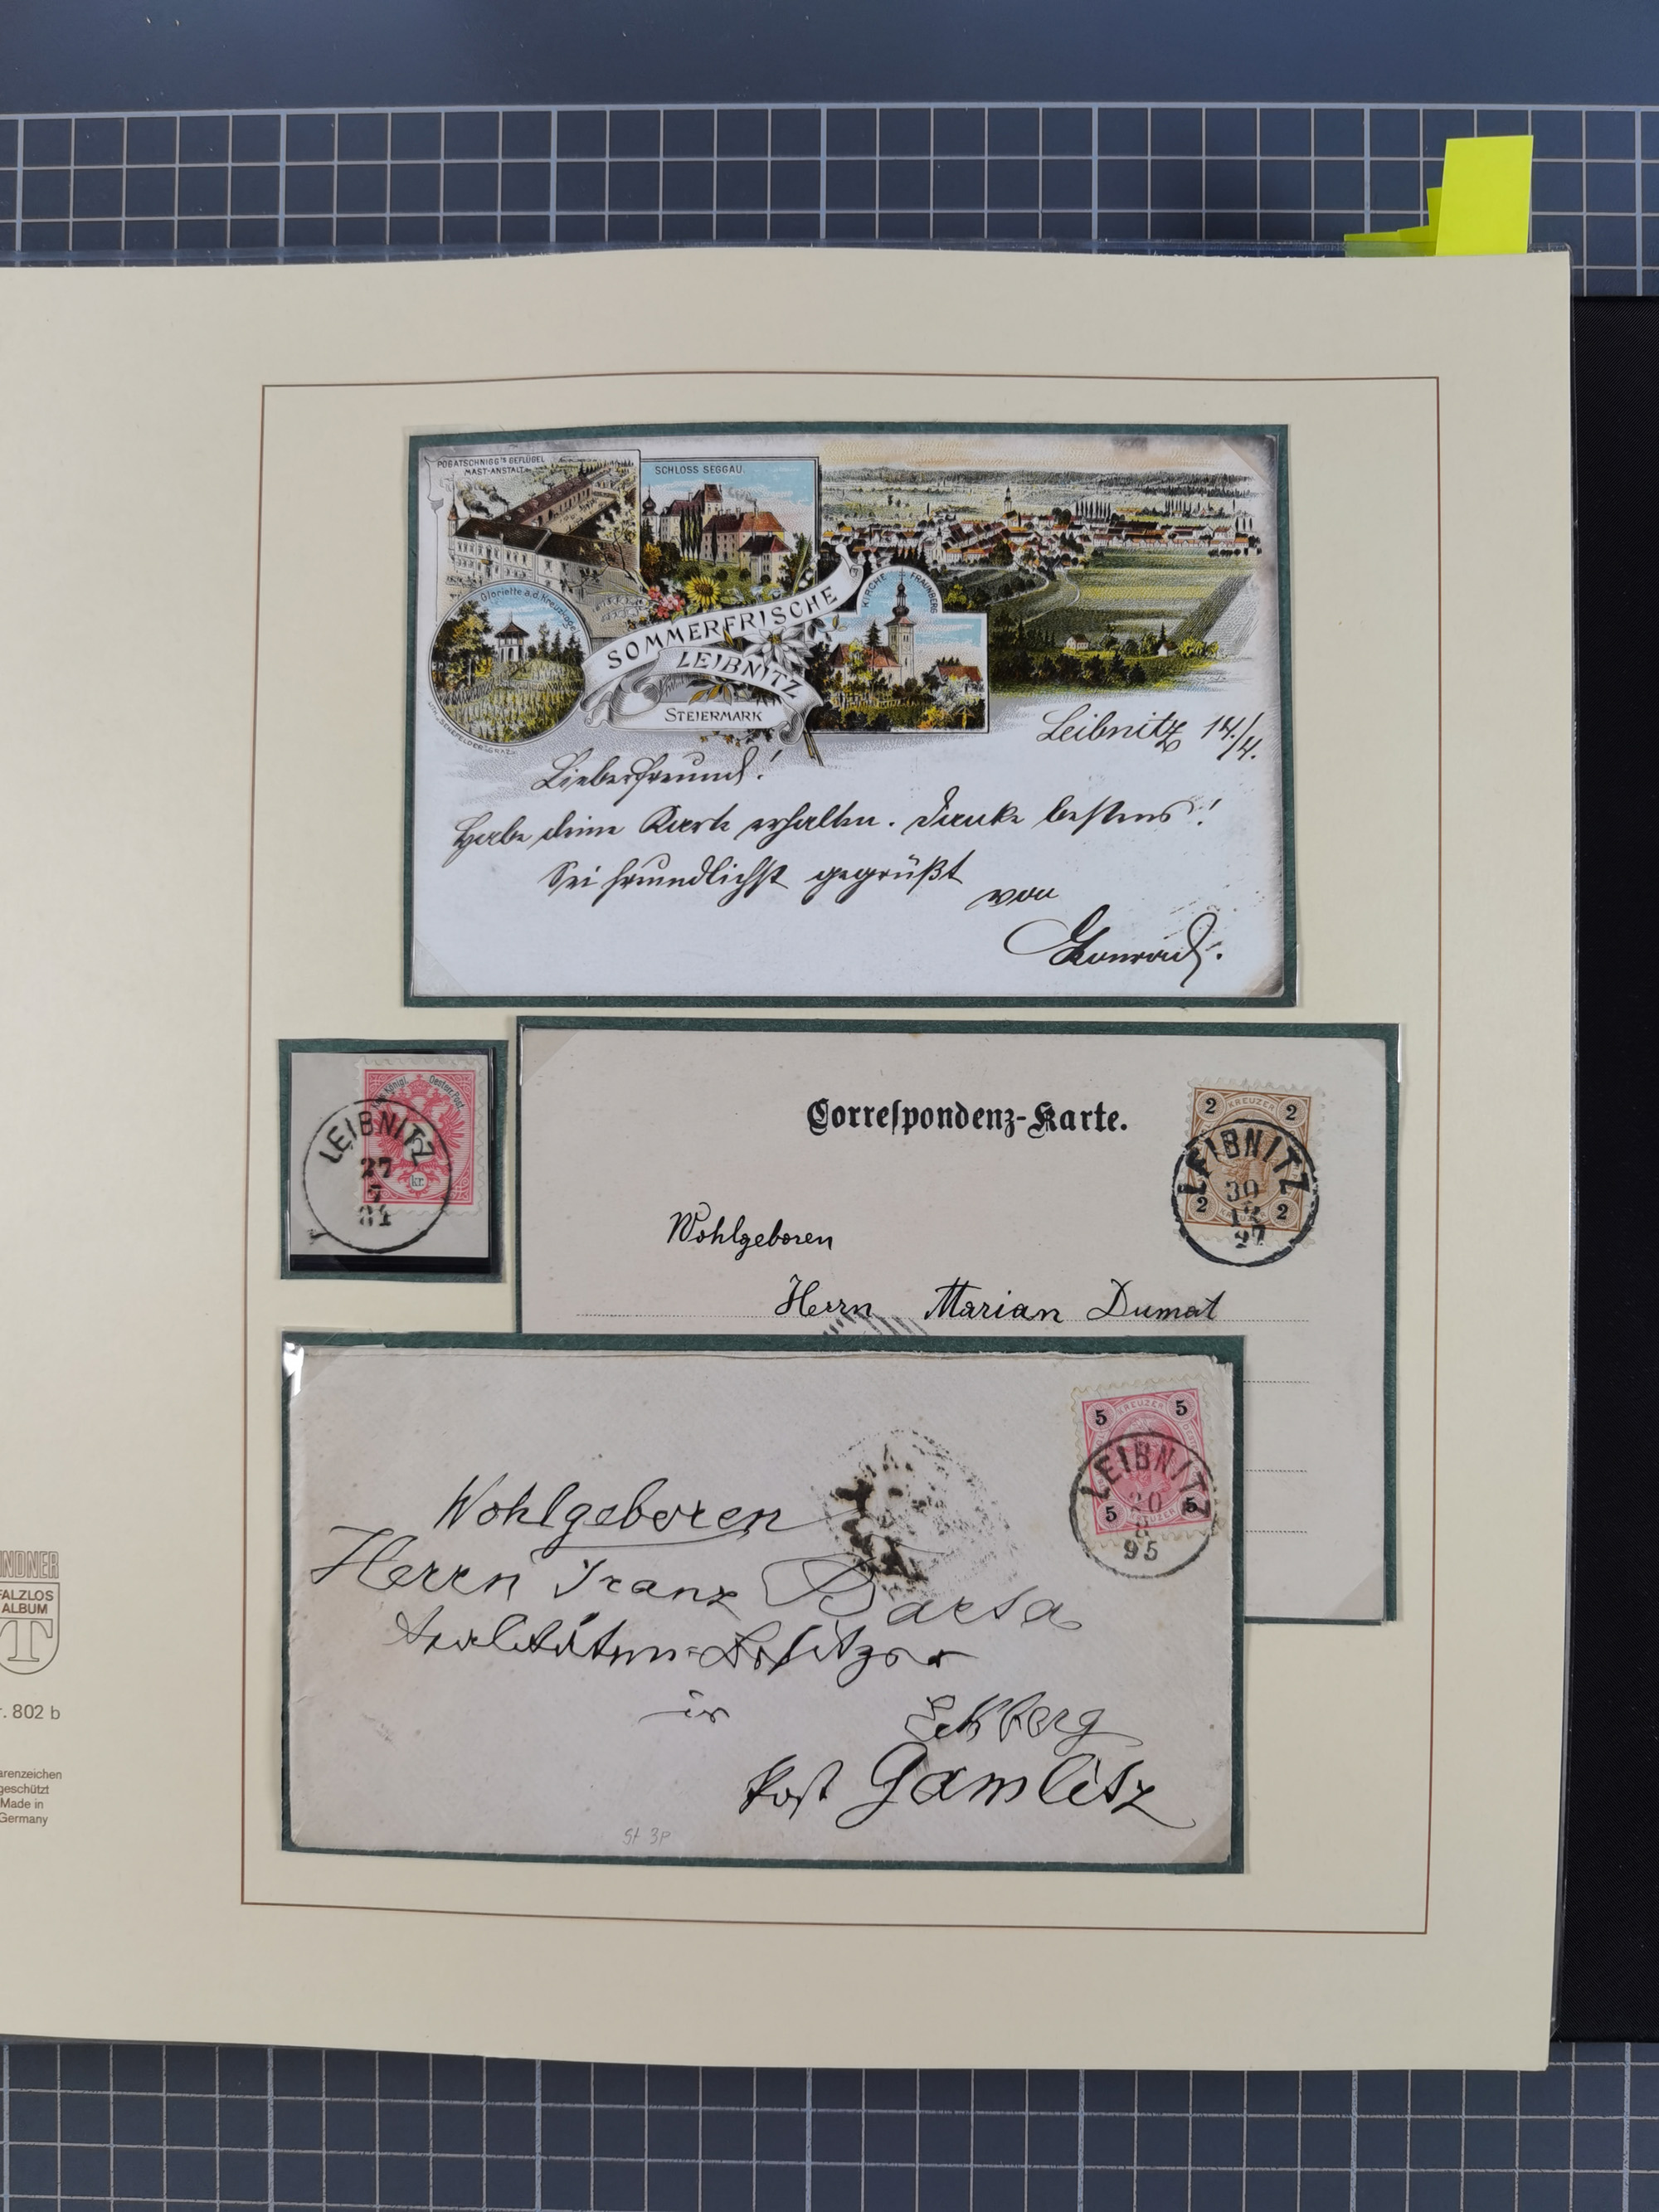 POGATSCHNIGG'S GEFLÜGEL
MAST-ANSTALT
SCHLOSS SEGGAU
Gloriette a.d. Kreuzkogel
KIRCHE FRAUNBERG
SOMMERFRISCHE
LEIBNITZ
STEIERMARK
SENEFELDER GRAZ
Leibnitz 14./4.
Lieber Freund!
Habe deine Karte erhalten. Danke bestens!
Sei freundlichst gegrüßt
von
Konrad.
Kais. Königl. Oesterr. Post
kr.
LEIBNITZ
27
7
84
Correspondenz-Karte.
2 KREUZER 2
2 KREUZER 2
LEIBNITZ
30
12
97
Wohlgeboren
Herrn Marian Dumat
5 KREUZER 5
5 KREUZER 5
LEIBNITZ
20
8
95
Wohlgeboren
Herrn Franz Barta
Realitäten-Besitzer
in Eckberg
Post Gamlitz
St 3P
INDNER
FALZLOS
ALBUM
T
r. 802 b
arenzeichen
geschützt
Made in
Germany